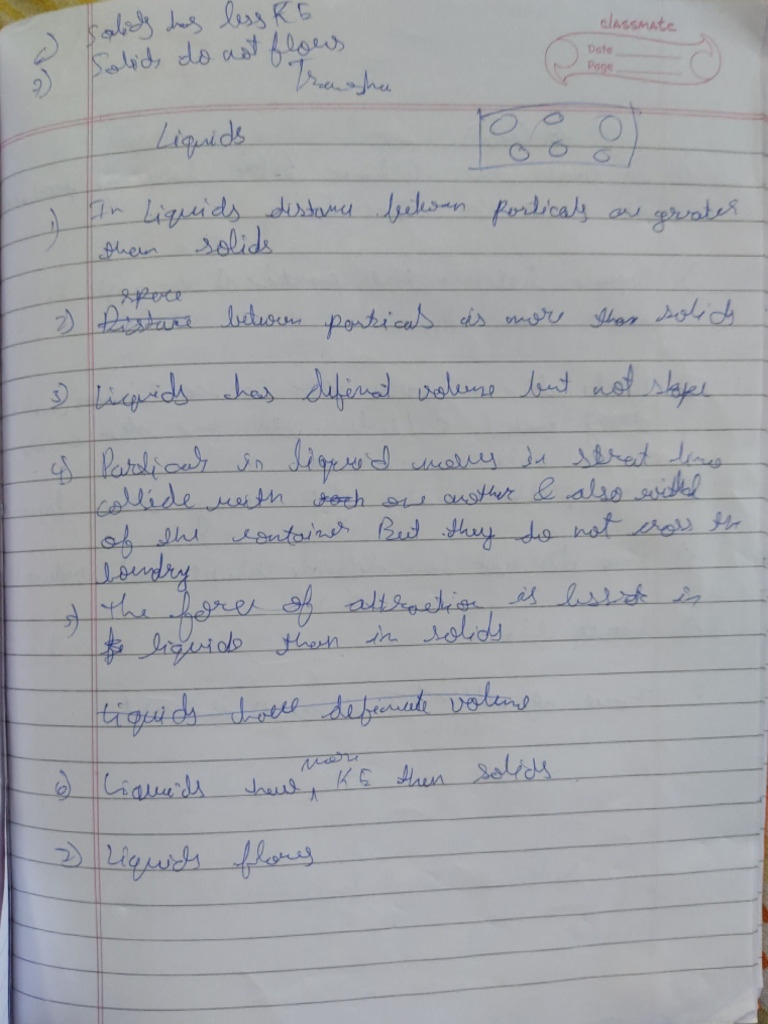 6) Solids has less KE
7) Solids do not flows
classmate
Date
Page
Liquids
1) In Liquids distance between particals are greater
than solids
space
2) Distance between particals is more than solids
3) Liquids has definat volume but not shape
4) Particals in liquid moves in strat line
collide with each one another & also
of the container But they do not cross the
boundry
5) The force of attraction is less in
liquids than in solids
Liquids have definate volume
more
6) Liquids have KE then solids
7) Liquids flows